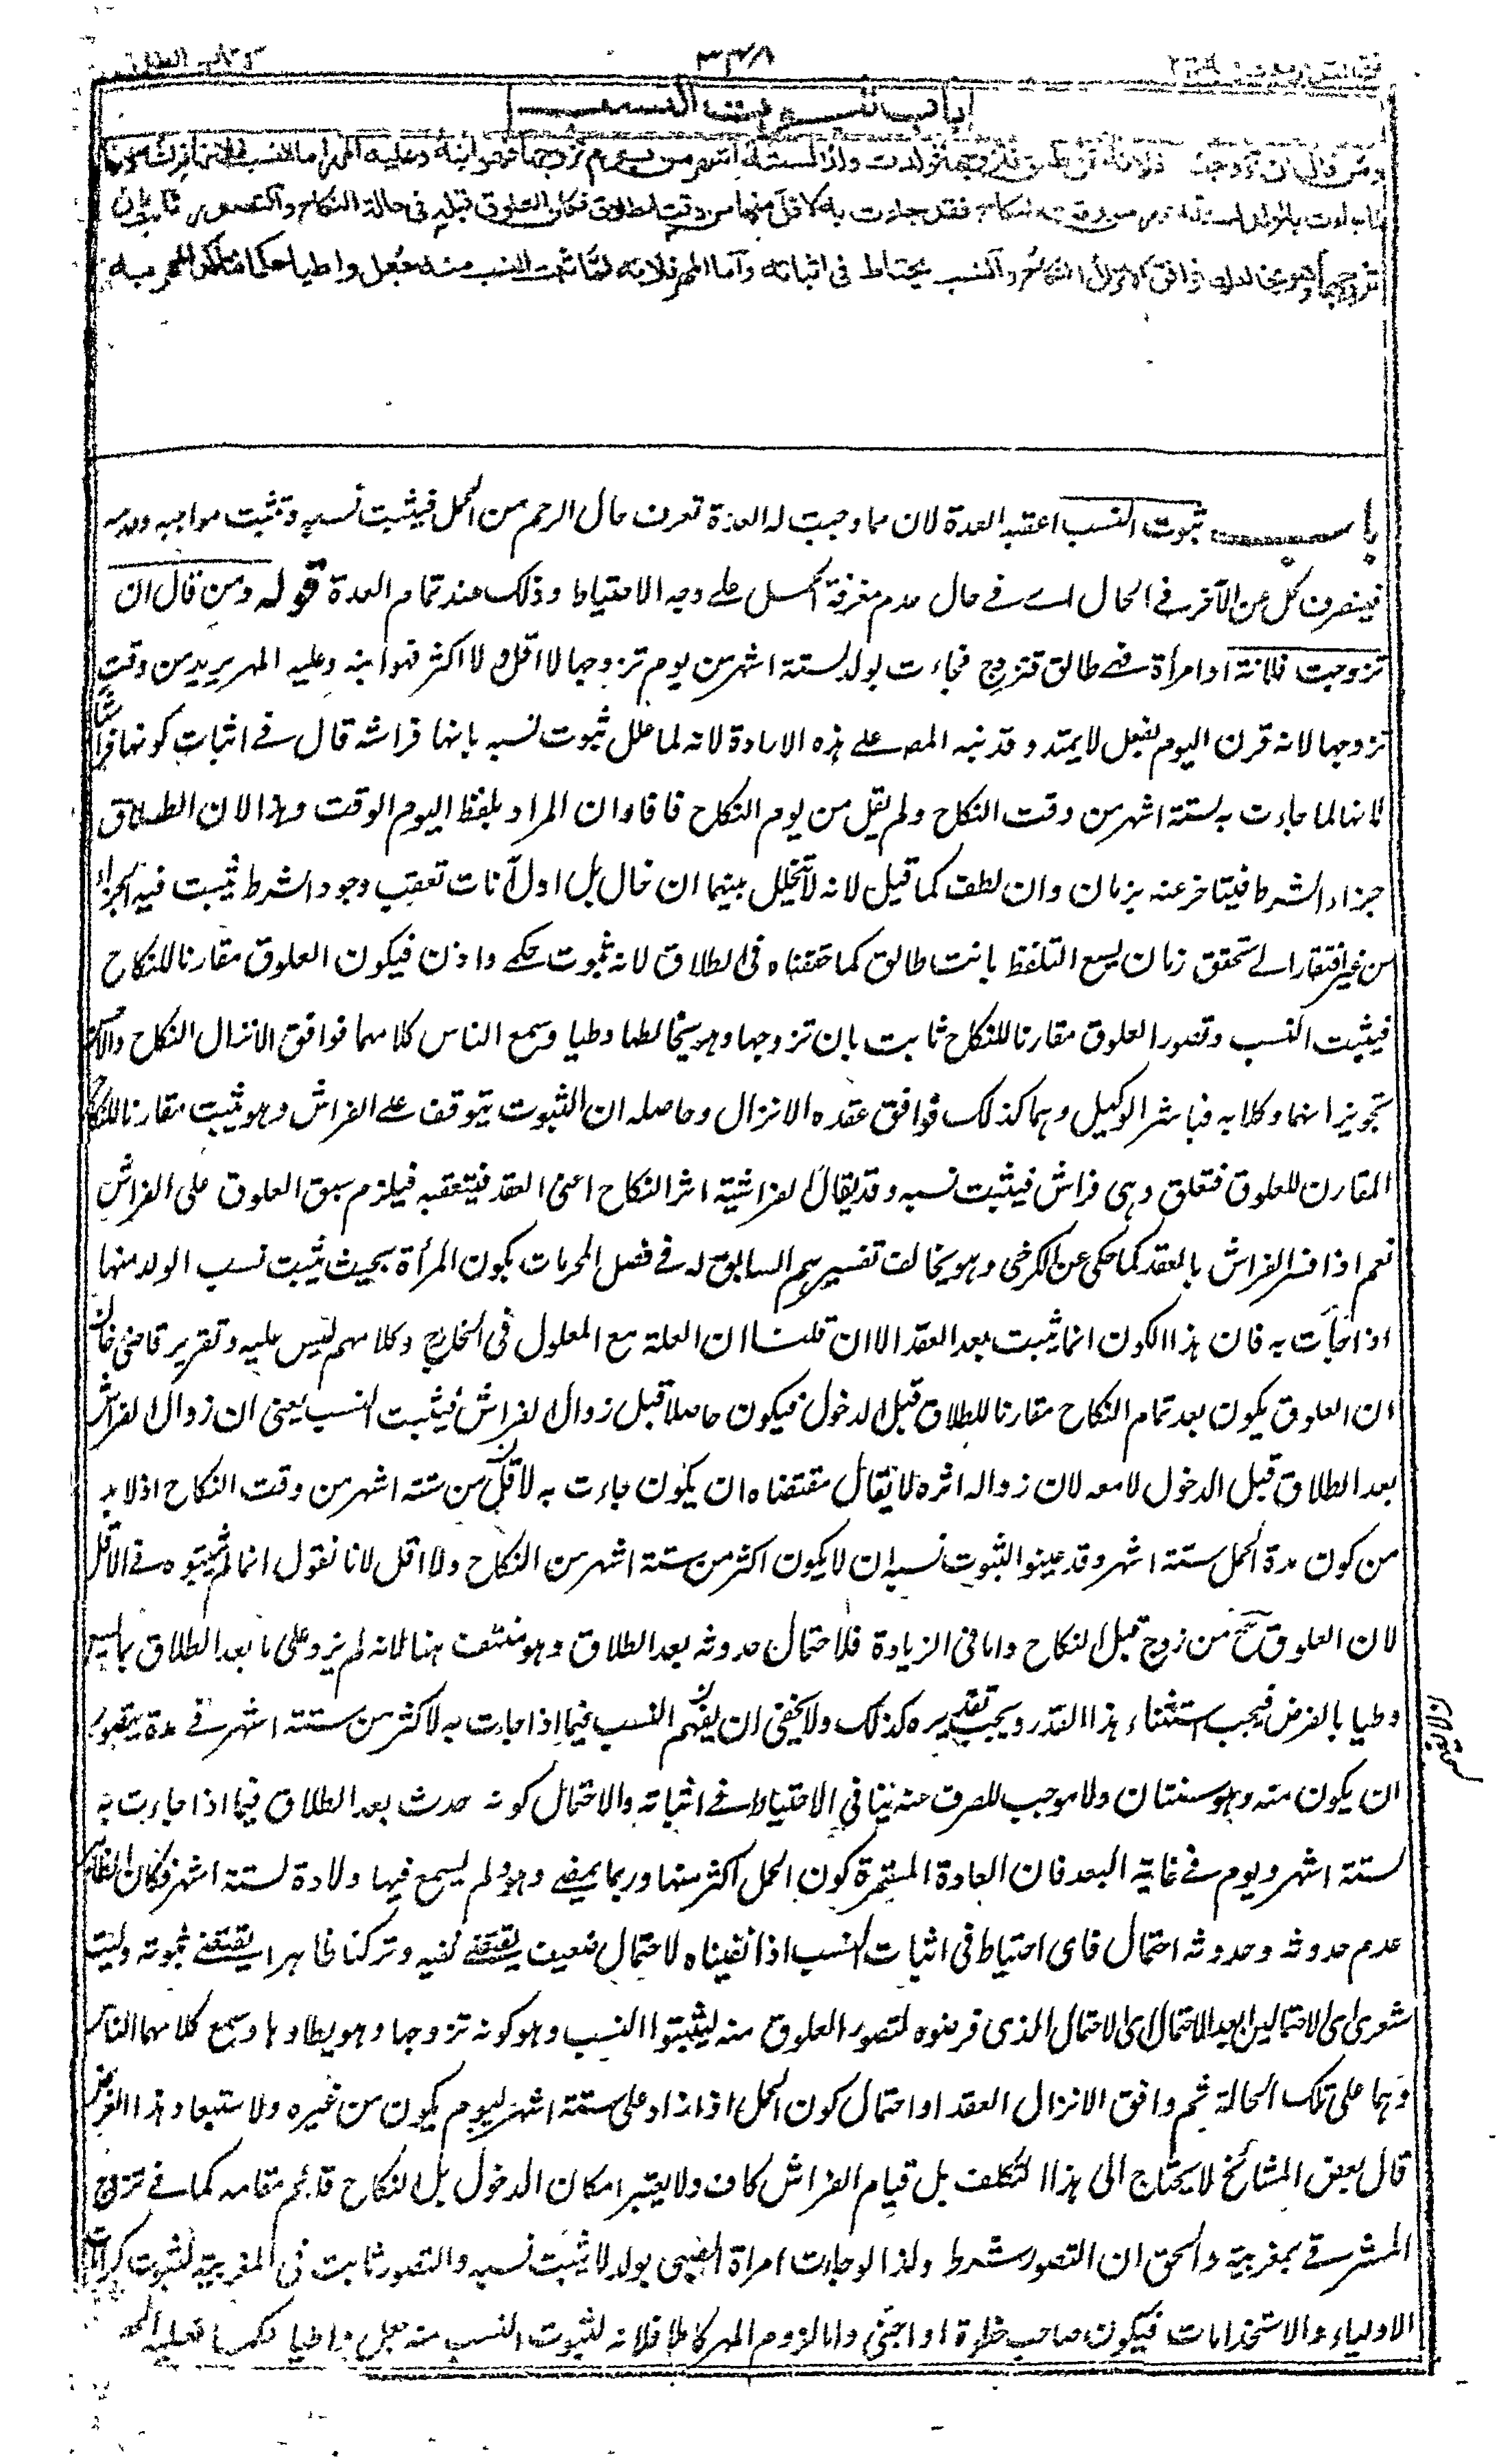 كتاب الطلاق
٣٤٨
باب ثبوت النسب
ومن قال ان تزوجت فلانة فهي طالق فتزوجها فولدت ولدا لستة اشهر من يوم تزوجها فهو ابنه وعليه المهر اما النسب فلانها فراشه لانها
لما جاءت بالولد لستة اشهر من وقت النكاح فقد جاءت به لاقل منها من وقت الطلاق فكان العلوق قبله في حالة النكاح والتصور ثابت بان
تزوجها وهو يخالطها فوافق الانزال النكاح والنسب يحتاط في اثباته واما المهر فلانه لما ثبت النسب منه جعل واطيا حكما فتأكد المهر به
باب ثبوت النسب اعقبه العدة لان مما وجبت له العدة تعرف حال الرحم من الحمل فيثبت نسبه وتثبت مواجبه وعدمه
فينصرف كل عن الآخر في الحال اے في حال عدم معرفة الحمل على وجه الاحتياط وذلك عند تمام العدة قوله ومن قال ان
تزوجت فلانة او امرأة فهي طالق فتزوج فجاءت بولد لستة اشهر من يوم تزوجها لا اقل ولا اكثر فهو ابنه وعليه المهر يريد من وقت
تزوجها لانه قرن اليوم بفعل لا يمتد وقد نبه المصـ على هذه الارادة لانه لما علل ثبوت نسبه بانها فراشه قال في اثبات كونها فراشا
لانها لما جاءت به لستة اشهر من وقت النكاح ولم يقل من يوم النكاح فافاد ان المراد بلفظ اليوم الوقت وهذا لان الطلاق
جزاء الشرط فيتاخر عنه بزمان وان لطف كما قيل لانه لا يتخلل بينهما ان خال بل اول آنات تعقب وجود الشرط يثبت فيه الجزاء
من غير افتقار الى تحقق زمان يسع التلفظ بانت طالق كما حققناه فى الطلاق لانه ثبوت حكمي واذن فيكون العلوق مقارنا للنكاح
فيثبت النسب وتصور العلوق مقارنا للنكاح ثابت بان تزوجها وهو يخالطها وطيا وسمع الناس كلامهما فوافق الانزال النكاح والاحسن
تجويز انهما وكلا به فباشر الوكيل وهما كذلك فوافق عقده الانزال وحاصله ان الثبوت يتوقف على الفراش وهو يثبت مقارنا للنكاح
المقارن للعلوق فتعلق وهى فراش فيثبت نسبه وقد يقال الفراشية اثر النكاح اعنى العقد فيتعقبه فيلزم سبق العلوق على الفراش
نعم اذا فسر الفراش بالعقد كما حكى عن الكرخى وهو يخالف تفسيرهم السابق له في فصل المحرمات بكون المرأة بحيث يثبت نسب الولد منها
اذا جاءت به فان هذا الكون انما يثبت بعد العقد الا ان قلنا ان العلة مع المعلول فى الخارج وكلامهم ليس عليه وتقرير قاضى خان
ان العلوق يكون بعد تمام النكاح مقارنا للطلاق قبل الدخول فيكون حاصلا قبل زوال الفراش فيثبت النسب يعنى ان زوال الفراش
بعد الطلاق قبل الدخول لا معه لان زواله اثره لا يقال مقتضاه ان يكون جاءت به لاقل من ستة اشهر من وقت النكاح اذ لا بد
من كون مدة الحمل ستة اشهر وقد عينوا لثبوت نسبه ان لا يكون اكثر من ستة اشهر من النكاح ولا اقل لانا نقول انما لم يثبتوه فى الاقل
لان العلوق ح من زوج قبل النكاح واما فى الزيادة فلاحتمال حدوثه بعد الطلاق وهو منتف هنا لانه لم يزد على ما بعد الطلاق بما يسع
وطيا بالفرض فيجب استثناء هذا القدر ويجب تقديره كذلك ولا يخفى ان نفيهم النسب فيما اذا جاءت به لاكثر من ستة اشهر فى مدة يتصور
ان يكون منه وهو سنتان ولا موجب للصرف عنه ينافي الاحتياط في اثباته والاحتمال كونه حدث بعد الطلاق فيما اذا جاءت به
لستة اشهر ويوم في غاية البعد فان العادة المستمرة كون الحمل اكثر منها وربما يمضى دهور لم يسمع فيها ولادة لستة اشهر فكان الظاهر
عدم حدوثه وحدوثه احتمال فاى احتياط فى اثبات النسب اذا نفيناه لاحتمال ضعيف يقتضى نفيه وتركنا ظاهرا يقتضى ثبوته وليت
شعرى اى الاحتمالين ابعد الاحتمال الذى فرضوه لتصور العلوق منه ليثبتوا النسب وهو كونه تزوجها وهو يطاؤها وسمع كلامهما الناس
وهما على تلك الحالة ثم وافق الانزال العقد او احتمال كون الحمل اذا زاد على ستة اشهر بيوم يكون من غيره ولاستبعاد هذا الفرض
قال بعض المشائخ لا يحتاج الى هذا التكلف بل قيام الفراش كاف ولا يعتبر امكان الدخول بل النكاح قائم مقامه كما فى تزوج
المشرقى بمغربية والحق ان التصور شرط ولذا لو جاءت امراة الصبى بولد لا يثبت نسبه والتصور ثابت فى المغربية لثبوت كرامات
الاولياء والاستخدامات فيكون صاحب خطوة او اجنى واما لزوم المهر كاملا فلانه لثبوت النسب منه جعل واطيا حكما فعليه المهر